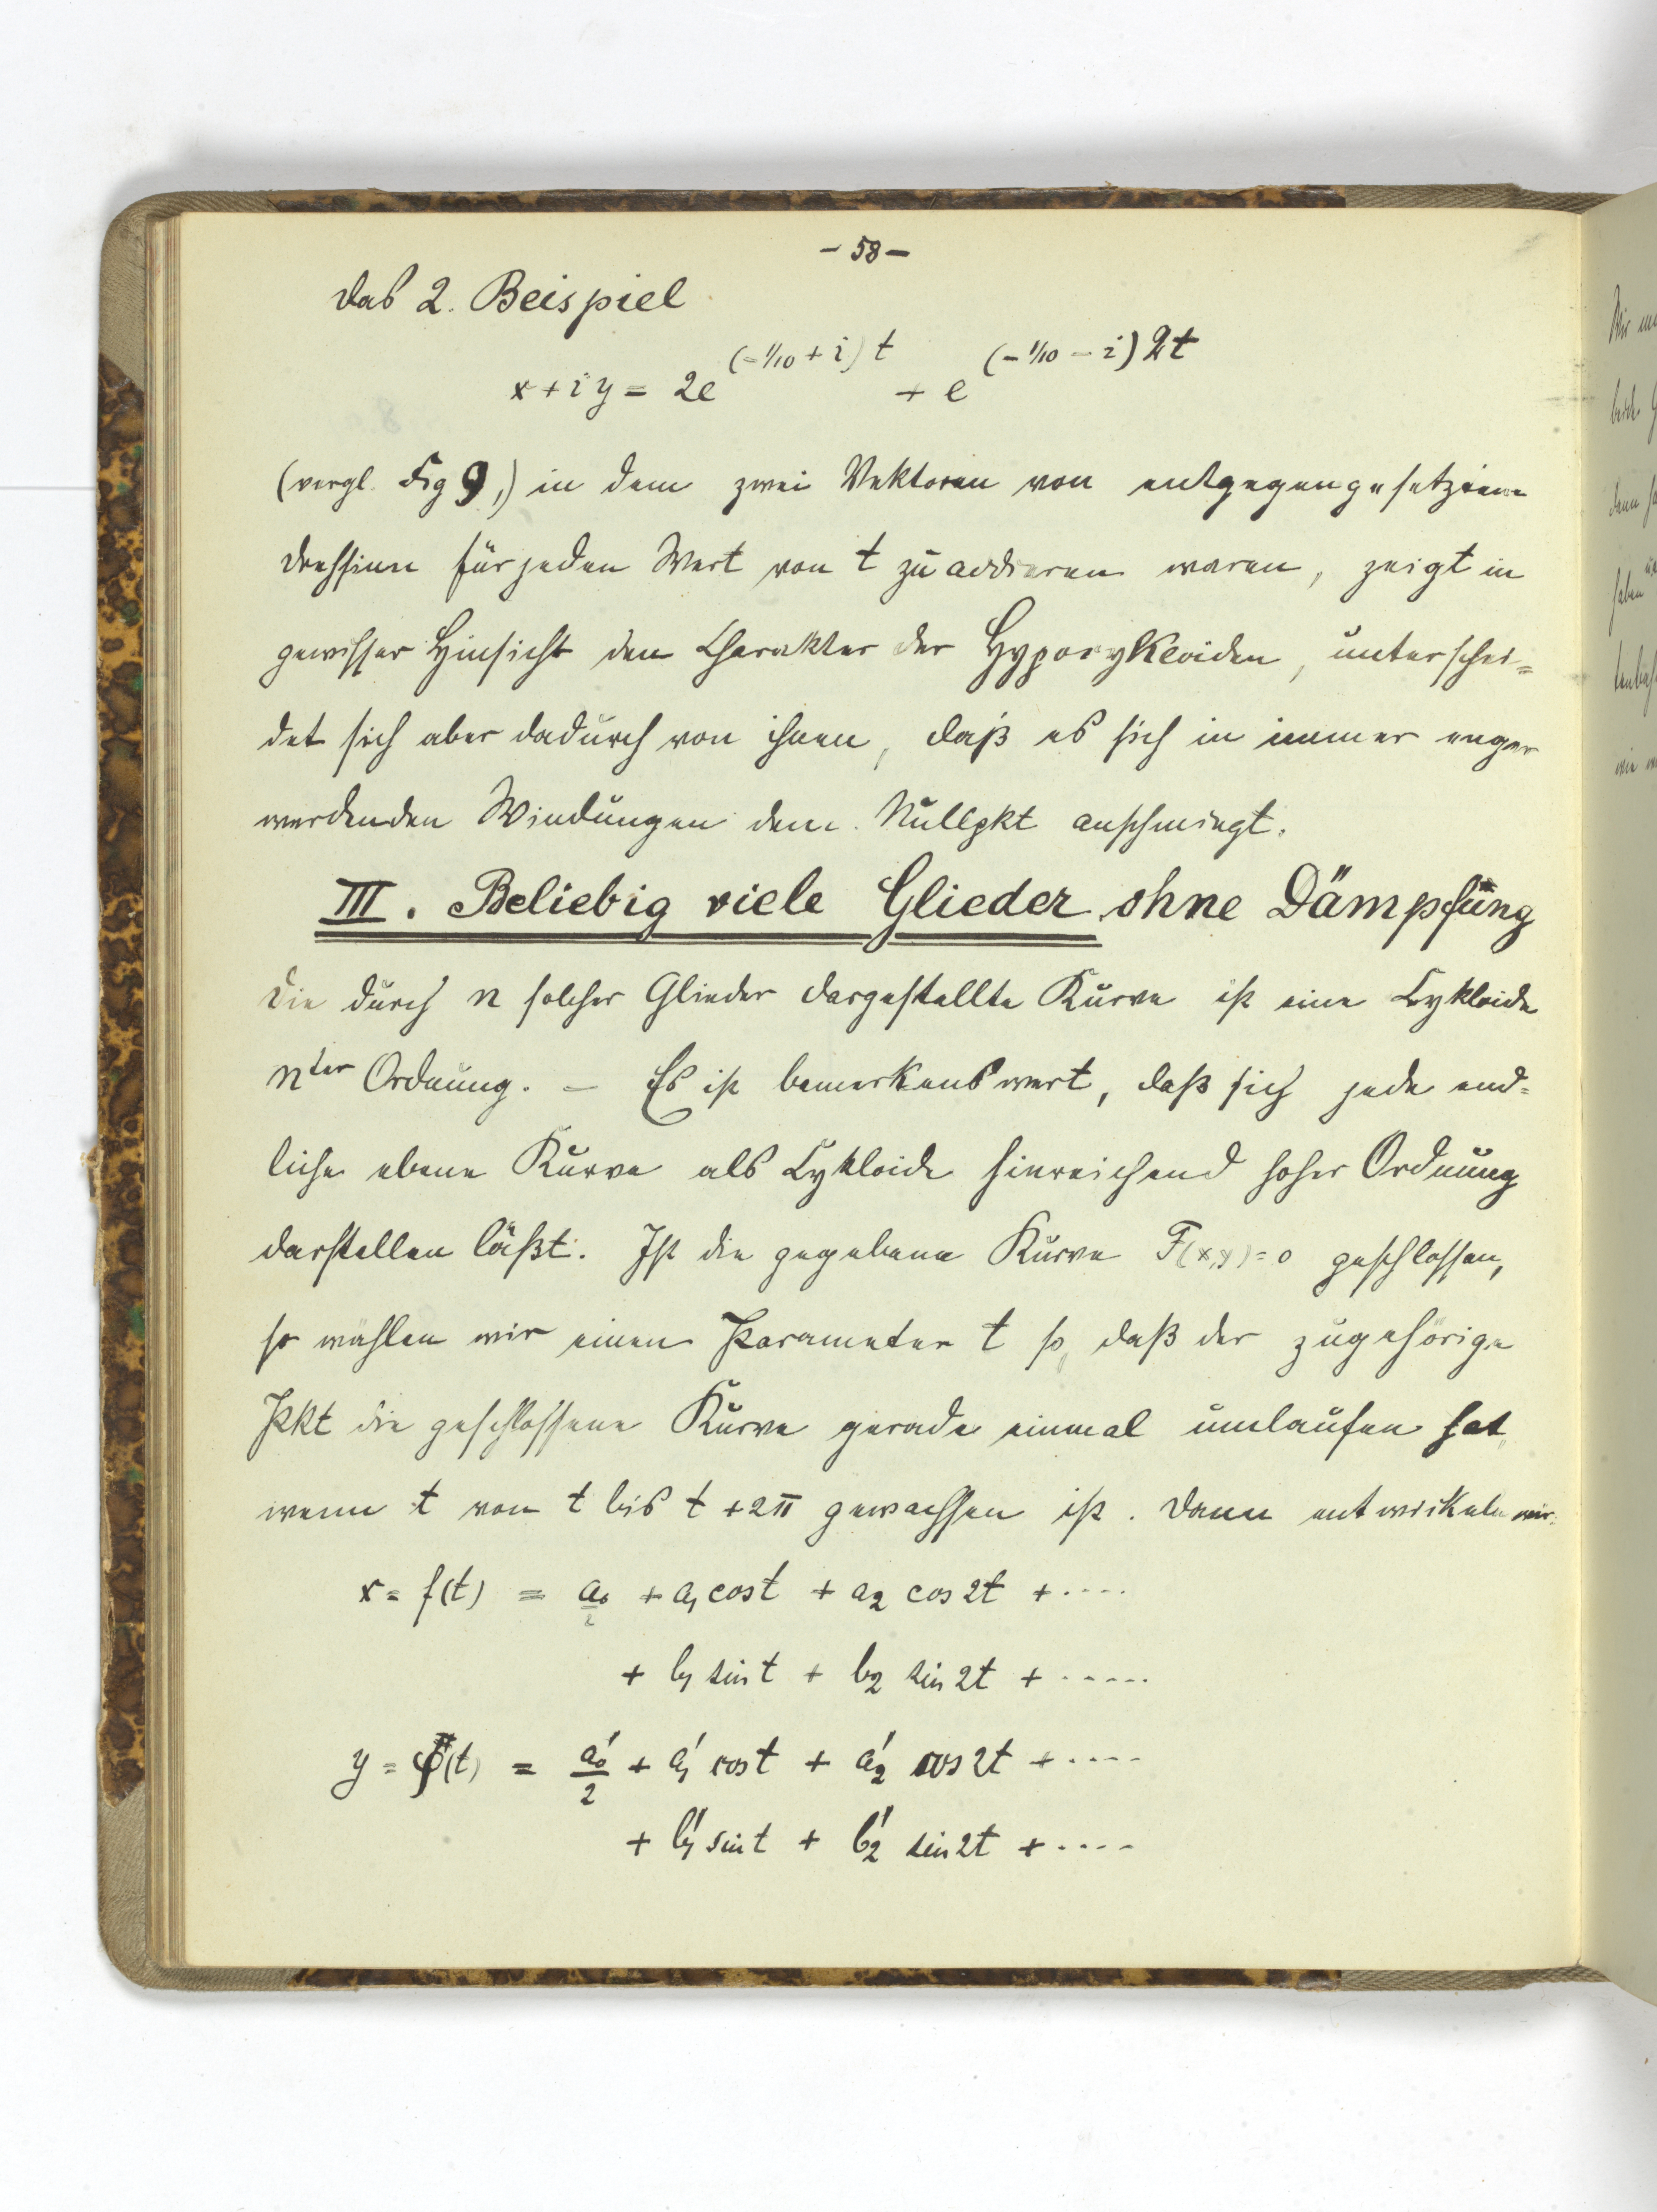 - 58 -
Das 2. Beispiel
x + iy = 2e^{(-1/10 + i) t} + e^{(-1/10 - i) 2t}
(vergl. Fig 9,) in dem zwei Vektoren von entgegengesetztem
Drehsinn für jeden Wert von t zu addieren waren, zeigt in
gewisser Hinsicht den Charakter der Hypozykloiden, unterschei=
det sich aber dadurch von ihnen, daß es sich in immer enger
werdenden Windungen dem Nullpkt anschmiegt.
III. Beliebig viele Glieder ohne Dämpfung
Die durch n solcher Glieder dargestellte Kurve ist eine Cykloide
nter Ordnung. – Es ist bemerkenswert, daß sich jede end=
liche ebene Kurve als Cykloide hinreichend hoher Ordnung
darstellen läßt. Ist die gegebene Kurve F(x,y) = 0 geschlossen,
so wählen wir einen Parameter t so, daß der zugehörige
Pkt die geschlossene Kurve gerade einmal umlaufen hat
wenn t von t bis t + 2π gewachsen ist. Dann entwickeln wir:
x = f(t) = a₀/2 + a₁ cos t + a₂ cos 2t + ....
+ b₁ sin t + b₂ sin 2t + ......
y = φ(t) = a₀'/2 + a₁' cos t + a₂' cos 2t + ....
+ b₁' sin t + b₂' sin 2t + ....